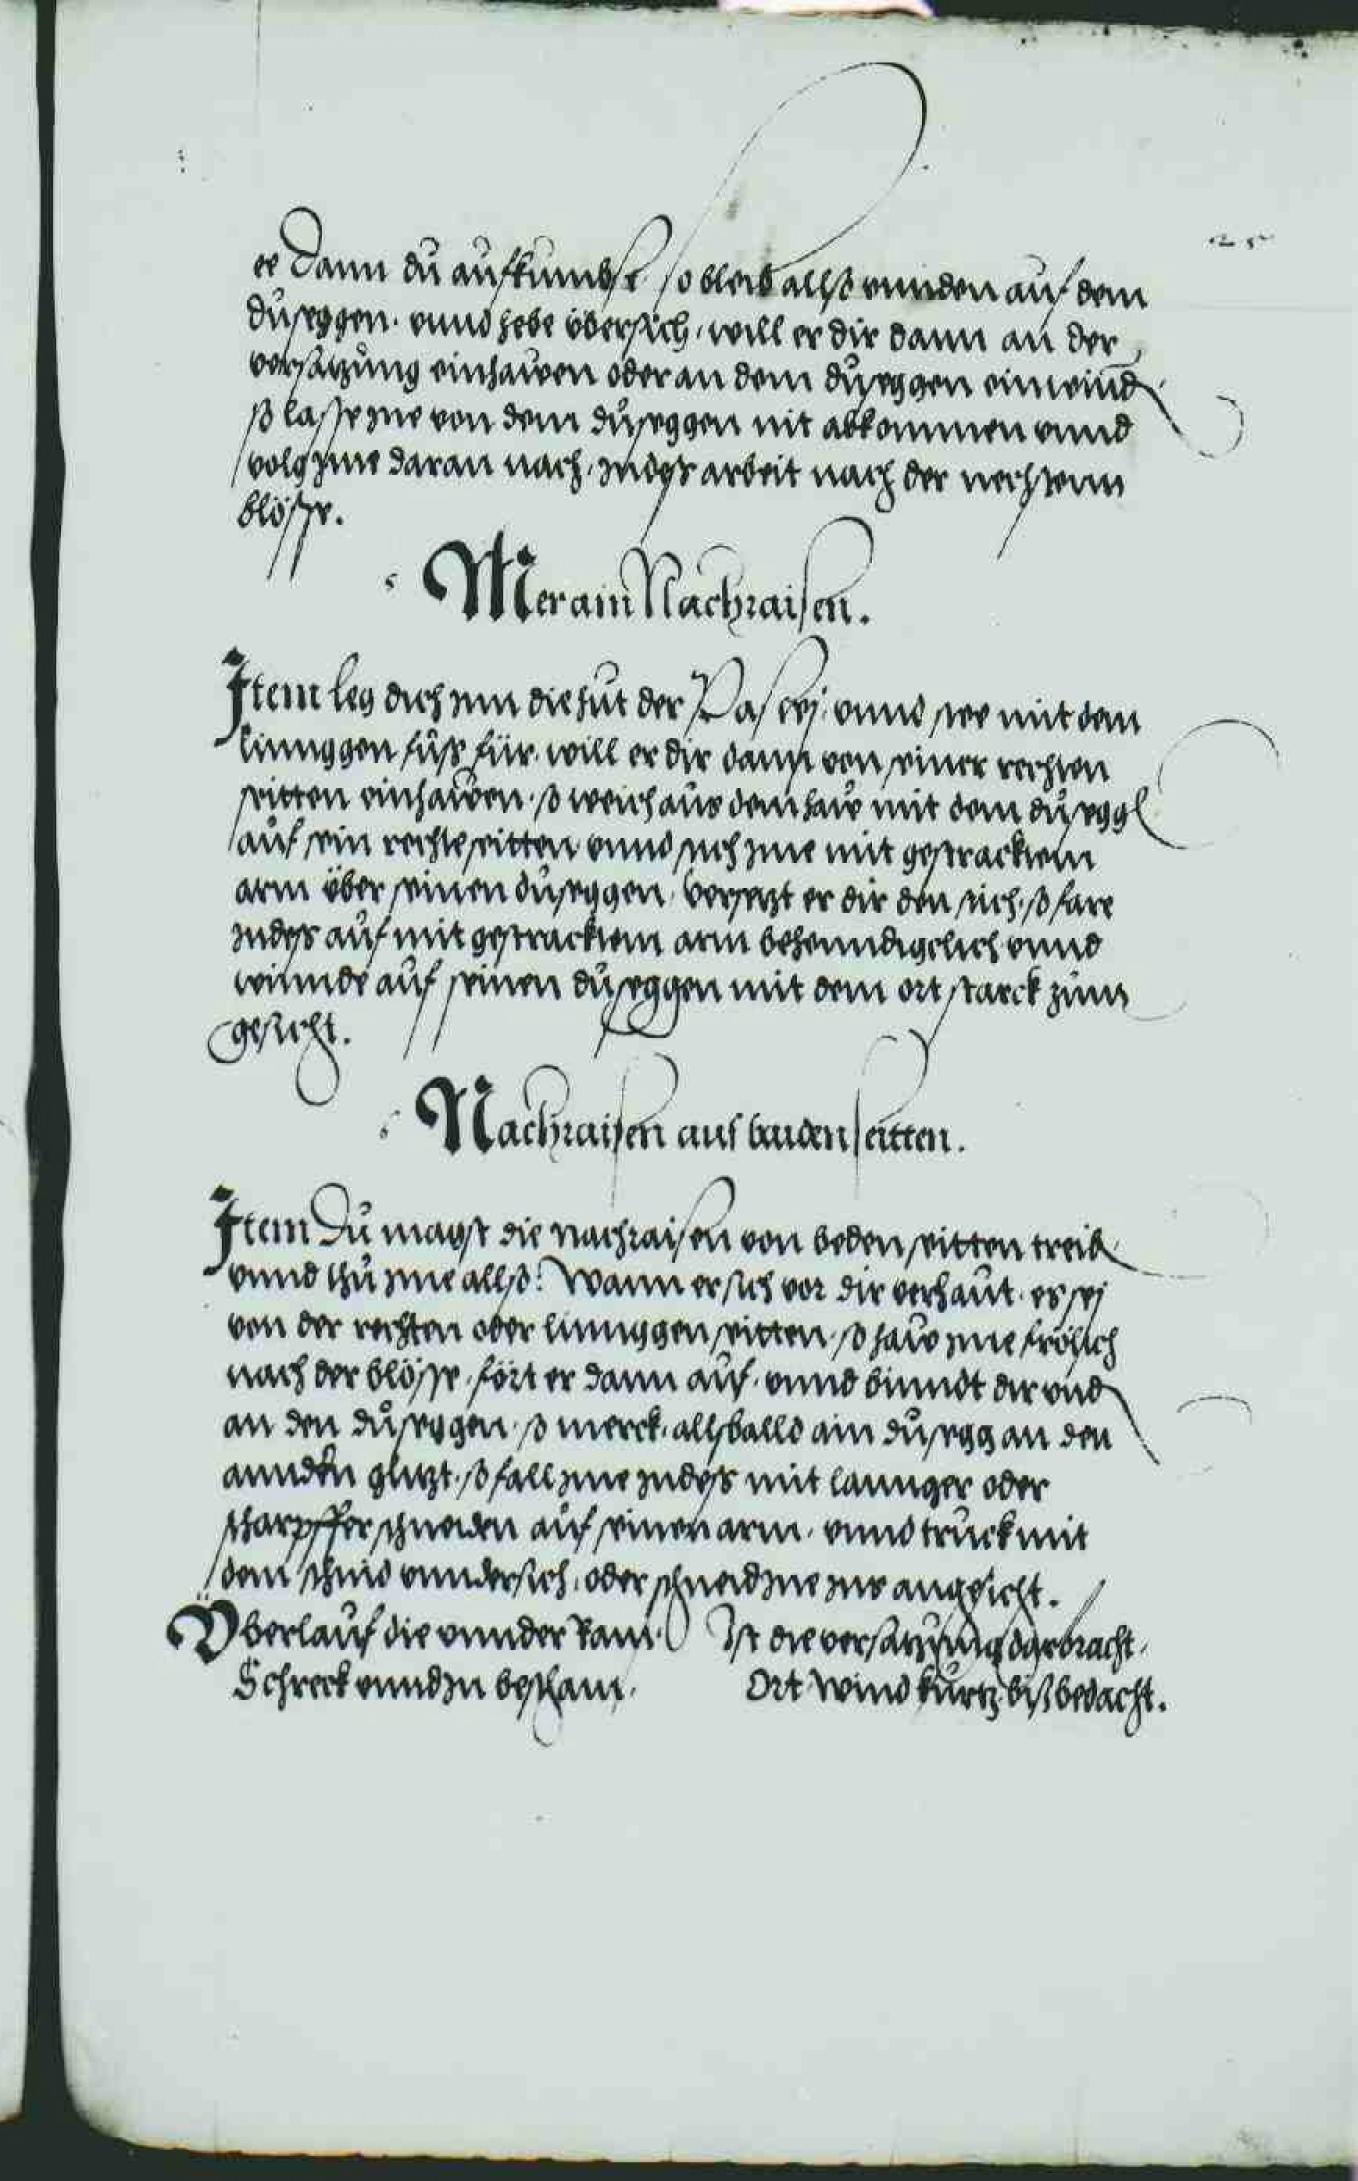 25
ee dann dú aúfkúmbst so bleib allß vnnden aúf dem
dúseggen. vnnd hebe übersich, will er dir dann an der
versatzúng einhawen oder an dem dúseggen einwind
ß lasse ine von dem dúseggen nit abkommen vnnd
volg ime daran nach, indes arbeit nach der nechsten
blösse.
Mer ain Nachraisen.
Item leg dich inn die hút der Pastej, vnnd stee mit dem
linnggen fúß für. will er dir dann von seiner rechten
seitten einhawen. ß weich aús dem haw mit dem dúseggen
aúf sein rechte seitten vnnd stich ime mit gestracktem
arm über seinen dúseggen, versetzt er dir den stich, ß fare
indes aúf mit gestracktem arm behenndigclich vnnd
winnde aúf seinen dúseggen mit dem ort starck zúm
gesicht.
Nachraisen aus baiden seitten.
Item Dú magst die nachraisen von beden seitten treib
vnnd thú ime allß: Wann er sich vor dir verhaút. es sej
von der rechten oder linnggen seitten. ß haw ime frölich
nach der blösse, fört er dann aúf. vnnd binndt dir vnd
an den dúseggen. ß merck, allsballd ain dúsegg an den
anndern glitzt. ß fall ime indes mit lannger oder
scharpffer schneiden aúf seinen arm. vnnd trúck mit
dem schnid vnndersich, oder schneid ime ins angesicht.
Überlaúf die vnnder kam Ist die versatzúng darbracht.
Schreck vnnd in bescham. Ort wind kúrtz biß bedacht.